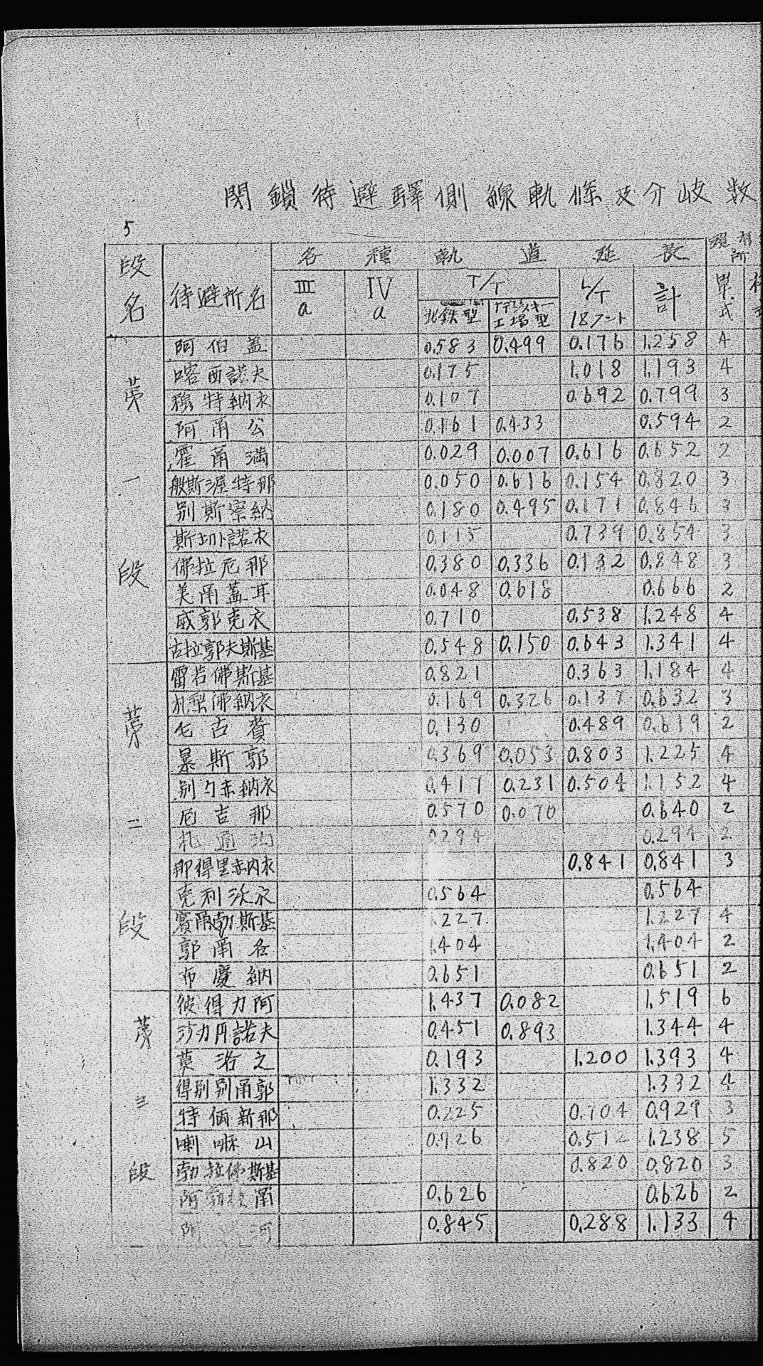 閉鎖待避驛側線軌條及分岐数
5
段名 待避所名 各種軌道延長
III a IV a T/T L/T 18フート 計 甲式
北鉄型 工場型
第一段
阿伯盖 0.583 0.499 0.176 1.258 4
喀西諾夫 0.175 1.018 1.193 4
穆特納衣 0.107 0.692 0.799 3
阿甭公 0.161 0.433 0.594 2
霍甭満 0.029 0.007 0.616 0.652 2
般斯渥特那 0.050 0.616 0.154 0.820 3
別斯寨納 0.180 0.495 0.171 0.846 3
諾衣 0.115 0.739 0.854 3
佛拉尼那 0.380 0.336 0.132 0.848 3
美甭盖耳 0.048 0.618 0.666 2
威郭克衣 0.710 0.538 1.248 4
古拉郭夫斯基 0.548 0.150 0.643 1.341 4
第二段
雷若佛斯基 0.821 0.363 1.184 4
佛納衣 0.169 0.326 0.137 0.632 3
古賚 0.130 0.489 0.619 2
景斯郭 0.369 0.053 0.803 1.225 4
別勺赤納衣 0.417 0.231 0.504 1.152 4
尼吉那 0.570 0.070 0.640 2
札通沟 0.294 0.294 2
那得里赤内衣 0.841 0.841 3
克利沃衣 0.564 0.564
賽甭勃斯基 1.227 1.227 4
郭甭名 1.404 1.404 2
布慶納 0.651 0.651 2
第三段
彼得力阿 1.437 0.082 1.519 6
沙力丹諾夫 0.451 0.893 1.344 4
莫洛之 0.193 1.200 1.393 4
得別別甭郭 1.332 1.332 4
特価新那 0.225 0.704 0.929 3
喇嘛山 0.726 0.512 1.238 5
勃拉佛斯基 0.820 0.820 3
阿勃 甭 0.626 0.626 2
阿 河 0.845 0.288 1.133 4